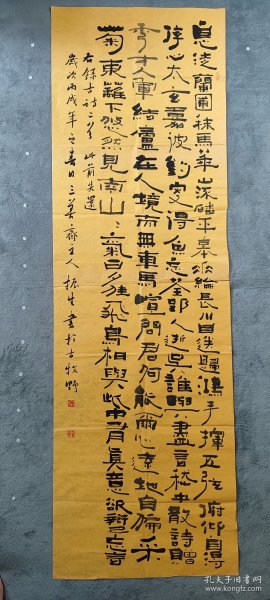 息徒蘭圃秣馬華山流磻平皋垂綸長川目送歸鴻手揮五弦俯仰自得
游心太玄嘉彼釣叟得魚忘筌郢人逝矣誰與盡言嵇中散詩贈
秀才入軍結廬在人境而無車馬喧問君何能爾心遠地自偏采
菊東蘺下悠然見南山〻氣日夕佳飛鳥相與此中有真意欲辯已忘言
右錄古詩二首 此前失還
歲次丙戌年之春日三 齋主人振生書於古牧野
孔夫子旧书网